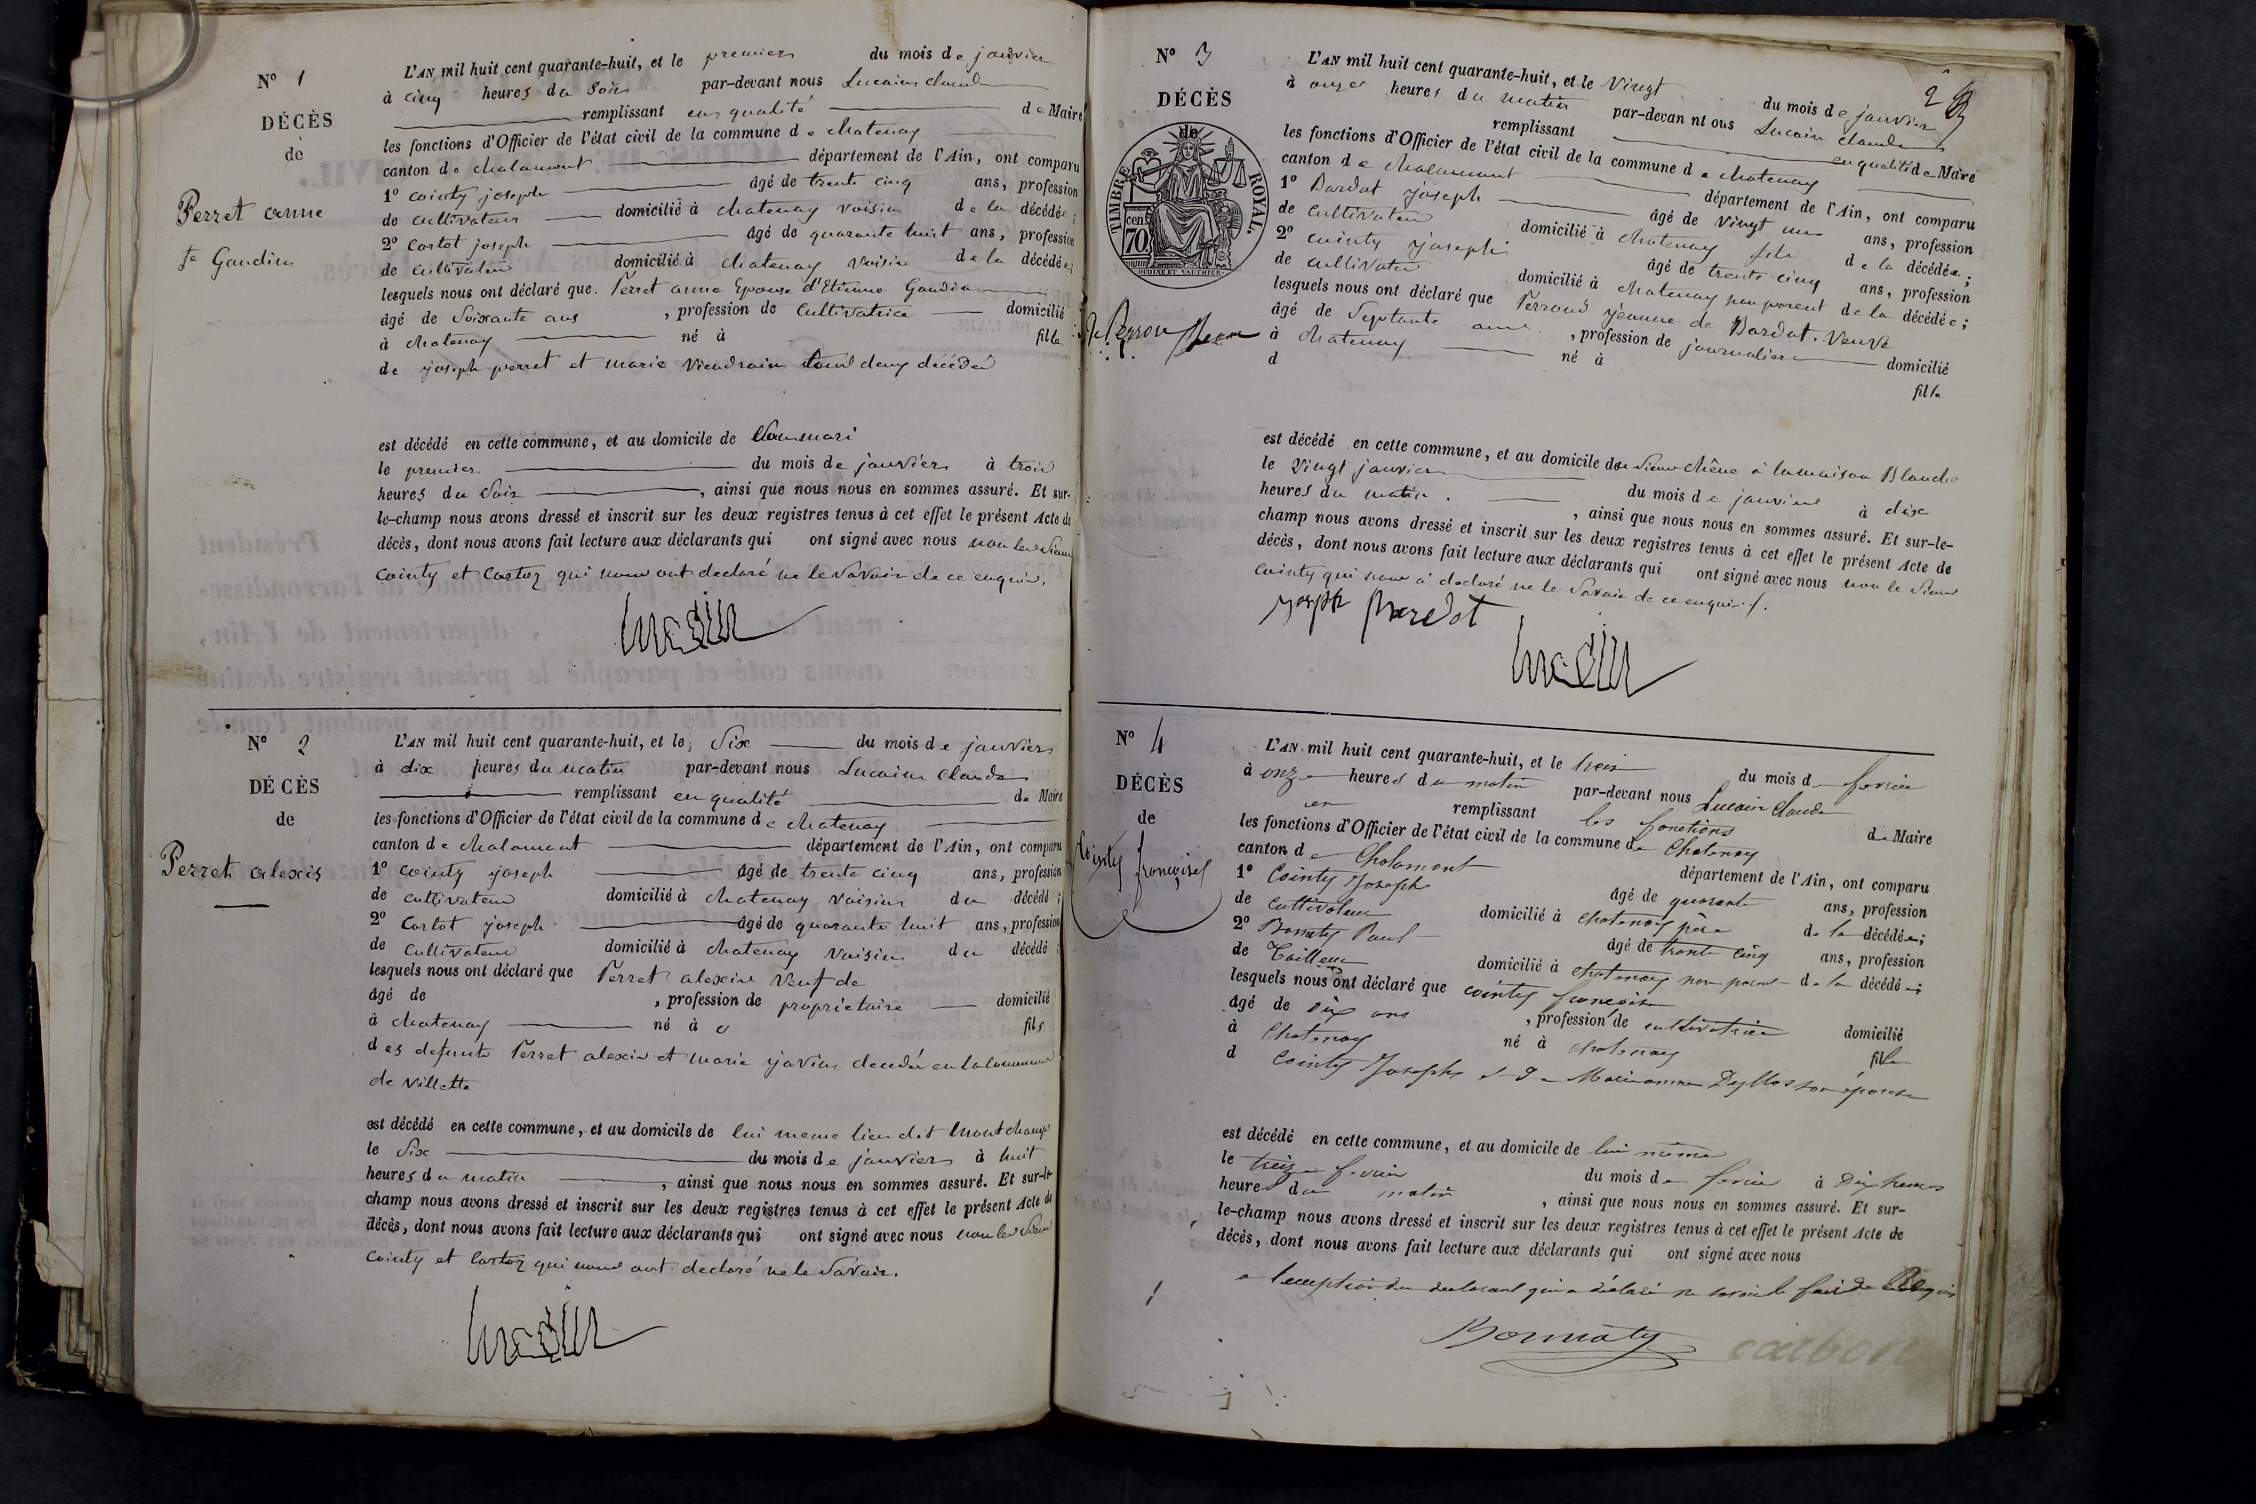 N° 1
DÉCÈS
de
Perret anne
fe Gaudin
L'AN mil huit cent quarante-huit, et le premier du mois de janvier
à cinq heures du soir par-devant nous Lucain claude
remplissant en qualité de Maire
les fonctions d'Officier de l'état civil de la commune de chatenay
canton de chalamont département de l'Ain, ont comparu
1° cointy joseph âgé de trente cinq ans, profession
de cultivateur domicilié à chatenay voisin de la décédée;
2° Cartot joseph âgé de quarante huit ans, profession
de cultivateur domicilié à chatenay voisin de la décédée;
lesquels nous ont déclaré que Perret anne Epouse d'Etienne Gaudin
âgé de Soixante ans, profession de Cultivatrice domicilié
à chatenay né à fille
de joseph perret et marie décédés
est décédé en cette commune, et au domicile de son mari
le premier du mois de janvier à trois
heures du soir, ainsi que nous nous en sommes assuré. Et sur-
le-champ nous avons dressé et inscrit sur les deux registres tenus à cet effet le présent Acte de
décès, dont nous avons fait lecture aux déclarants qui ont signé avec nous non les sieurs
cointy et Cartoz qui nous ont declaré ne le savoir de ce enquis.
Lucain
N° 2
DÉCÈS
de
Perret alexis
L'AN mil huit cent quarante-huit, et le six du mois de janvier
à dix heures du matin par-devant nous Lucain claude
remplissant en qualité de Maire
les fonctions d'Officier de l'état civil de la commune de chatenay
canton de chalamont département de l'Ain, ont comparu
1° cointy joseph âgé de trente cinq ans, profession
de cultivateur domicilié à chatenay voisin du décédé;
2° Cartot joseph âgé de quarante huit ans, profession
de Cultivateur domicilié à chatenay voisin du décédé
lesquels nous ont déclaré que Perret alexis veuf de
âgé de , profession de propriétaire domicilié
à chatenay né à fils
des defunts Perret alexis et marie decedés en la commune
de Villette
est décédé en cette commune, et au domicile de lui meme lieu dit montchamp
le six du mois de janvier à huit
heures du matin, ainsi que nous nous en sommes assuré. Et sur-le-
champ nous avons dressé et inscrit sur les deux registres tenus à cet effet le présent Acte de
décès, dont nous avons fait lecture aux déclarants qui ont signé avec nous non les sieurs
cointy et Cartoz qui nous ont declaré ne le savoir.
Lucain
2
N° 3
DÉCÈS
de
TIMBRE ROYAL.
70 cen
L'AN mil huit cent quarante-huit, et le Vingt du mois de janvier
à onze heures du matin par-devan nt ous Lucain claude
remplissant en qualité de Maire
les fonctions d'Officier de l'état civil de la commune de chatenay
canton de chalamont département de l'Ain, ont comparu
1° Bardot joseph âgé de Vingt un ans, profession
de cultivateur domicilié à chatenay fils de la décédée;
2° cointy joseph âgé de trente cinq ans, profession
de cultivateur domicilié à chatenay non parent de la décédée;
lesquels nous ont déclaré que Perroud jeanne de Bardot. Veuve
âgé de Septante ans, profession de journaliere domicilié
à chatenay né à fille
d
est décédé en cette commune, et au domicile du sieur chêne à la maison Blanche
le Vingt janvier du mois de janvier à dix
heures du matin, ainsi que nous nous en sommes assuré. Et sur-le-
champ nous avons dressé et inscrit sur les deux registres tenus à cet effet le présent Acte de
décès, dont nous avons fait lecture aux déclarants qui ont signé avec nous non le sieur
cointy qui nous a declaré ne le savoir de ce enquis.
joseph Bardot
Lucain
N° 4
DÉCÈS
de
Cointy françoise
L'AN mil huit cent quarante-huit, et le du mois de fevrier
à onze heures du matin par-devant nous Lucain Claude
en remplissant les fonctions de Maire
les fonctions d'Officier de l'état civil de la commune de Chatenay
canton de Chalamont département de l'Ain, ont comparu
1° Cointy Joseph âgé de quarante ans, profession
de Cultivateur domicilié à Chatenay père de la décédée;
2° Bornaty Paul âgé de trente cinq ans, profession
de Tailleur domicilié à chatenay non parent de la décédée;
lesquels nous ont déclaré que cointy francoise
âgé de dix ans, profession de cultivatrice domicilié
à Chatenay né à chatenay fille
d Cointy Joseph et de Marianne son épouse
est décédé en cette commune, et au domicile de lui même
le treize fevrier du mois de fevrier à Dix heures
heures du matin, ainsi que nous nous en sommes assuré. Et sur-
le-champ nous avons dressé et inscrit sur les deux registres tenus à cet effet le présent Acte de
décès, dont nous avons fait lecture aux déclarants qui ont signé avec nous
a l'exception du declarant qui a déclaré ne savoir le faire de
Bornaty